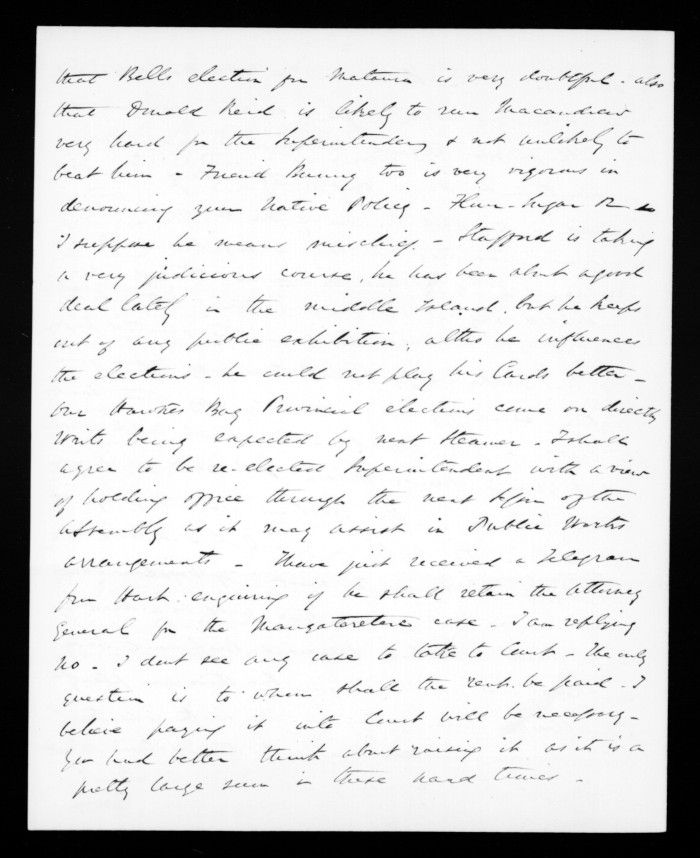 that Bells election for Mataura is very doubtful - also
that Donald Reid is likely to run Macandrew
very hard for the Superintendency & not unlikely to
beat him - Friend Bunny too is very vigorous in
denouncing your Native Policy - Flour - Sugar &c
I suppose he means mischief. - Stafford is taking
a very judicious course, he has been about a good
deal lately in the middle Island, but he keeps
out of any public exhibition, altho he influences
the elections - he could not play his Cards better -
Our Hawkes Bay Provincial elections come on directly
Writs being expected by next Steamer - I shall
agree to be re-elected Superintendent with a view
of holding office through the next Session of the
Assembly as it may assist in Public Works
arrangements - I have just received a Telegram
from Hart enquiring if he shall retain the Attorney
General for the Mangateretere case - I am replying
No - I dont see any case to take to Court - The only
question is to whom shall the rent be paid - I
believe paying it into Court will be necessary -
You had better think about raising it as it is a
pretty large sum in these hard times -